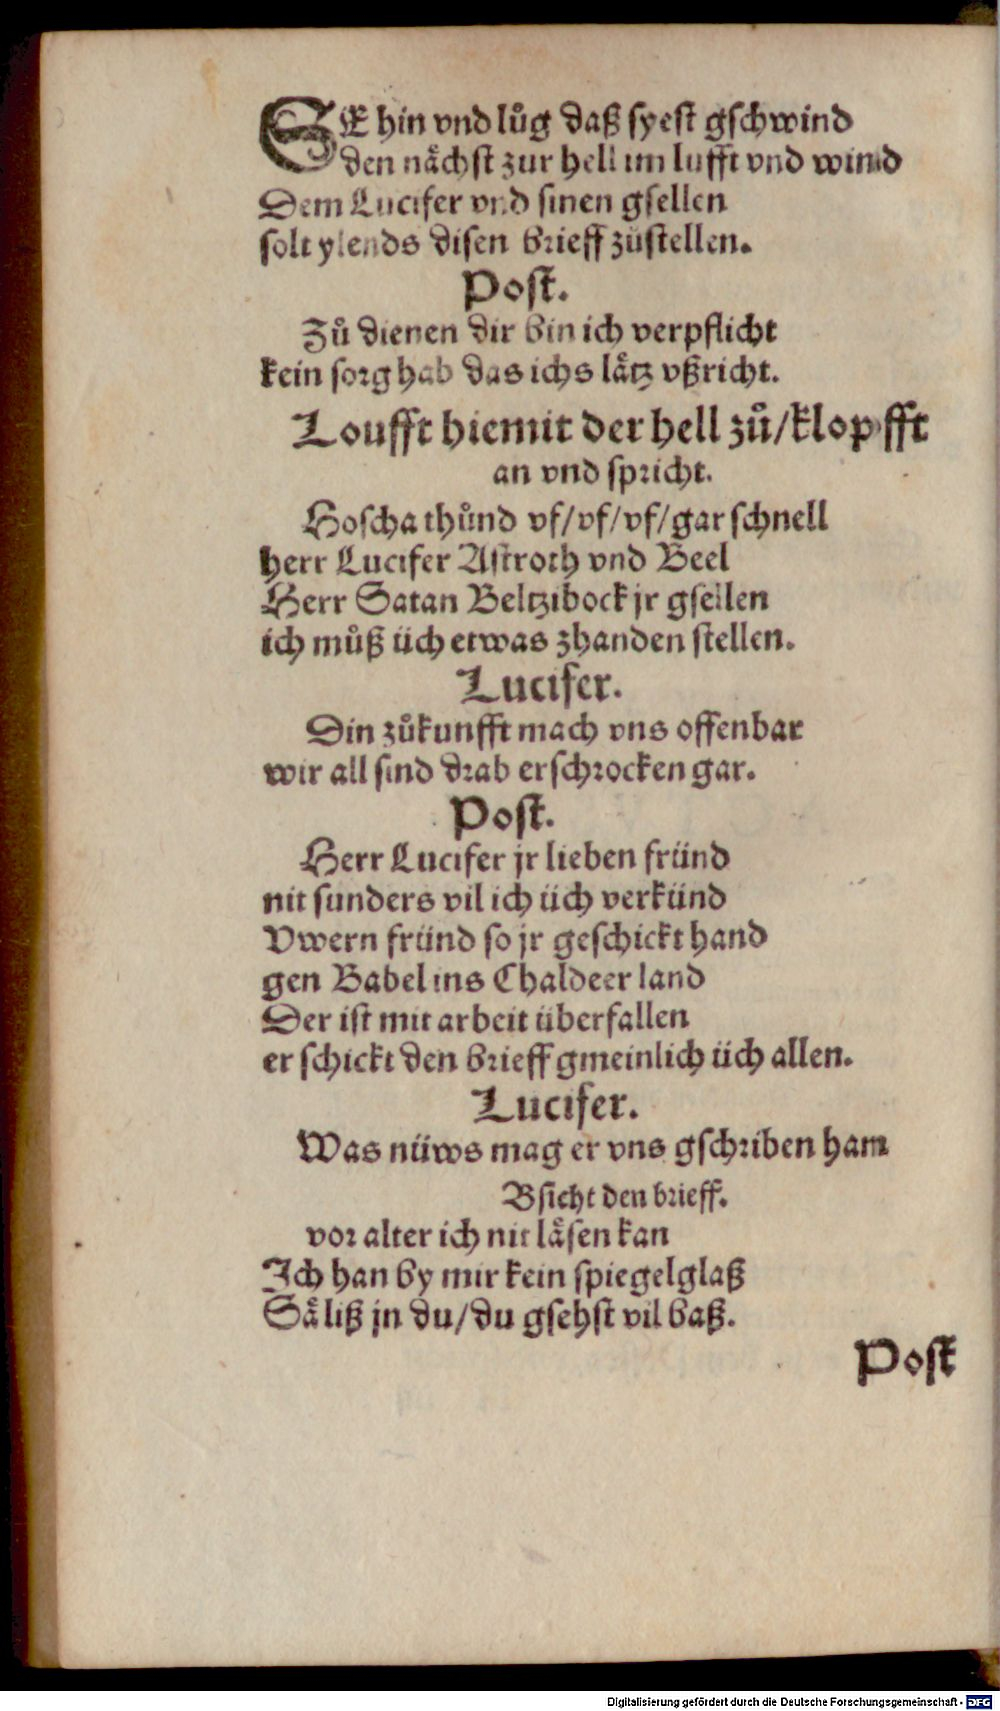 SE hin vnd lůg daß syest gschwind
den nächst zur hell im lufft vnd wind
Dem Lucifer vnd sinen gsellen
solt ylends disen brieff zůstellen.
Post.
Zů dienen dir bin ich verpflicht
kein sorg hab das ichs lätz vßricht.
Loufft hiemit der hell zů/klopfft
an vnd spricht.
Hoscha thůnd vf/vf/vf/gar schnell
herr Lucifer Astroth vnd Beel
Herr Satan Beltzibock jr gsellen
ich můß üch etwas zhanden stellen.
Lucifer.
Din zůkunfft mach vns offenbar
wir all sind drab erschrocken gar.
Post.
Herr Lucifer jr lieben fründ
nit sunders vil ich üch verkünd
Vwern fründ so jr geschickt hand
gen Babel ins Chaldeer land
Der ist mit arbeit überfallen
er schickt den brieff gmeinlich üch allen.
Lucifer.
Was nüws mag er vns gschriben ham
Bsicht den brieff.
vor alter ich nit läsen kan
Ich han by mir kein spiegelglaß
Sä liß jn du/du gsehst vil baß.
Post
Digitalisierung gefördert durch die Deutsche Forschungsgemeinschaft - DFG